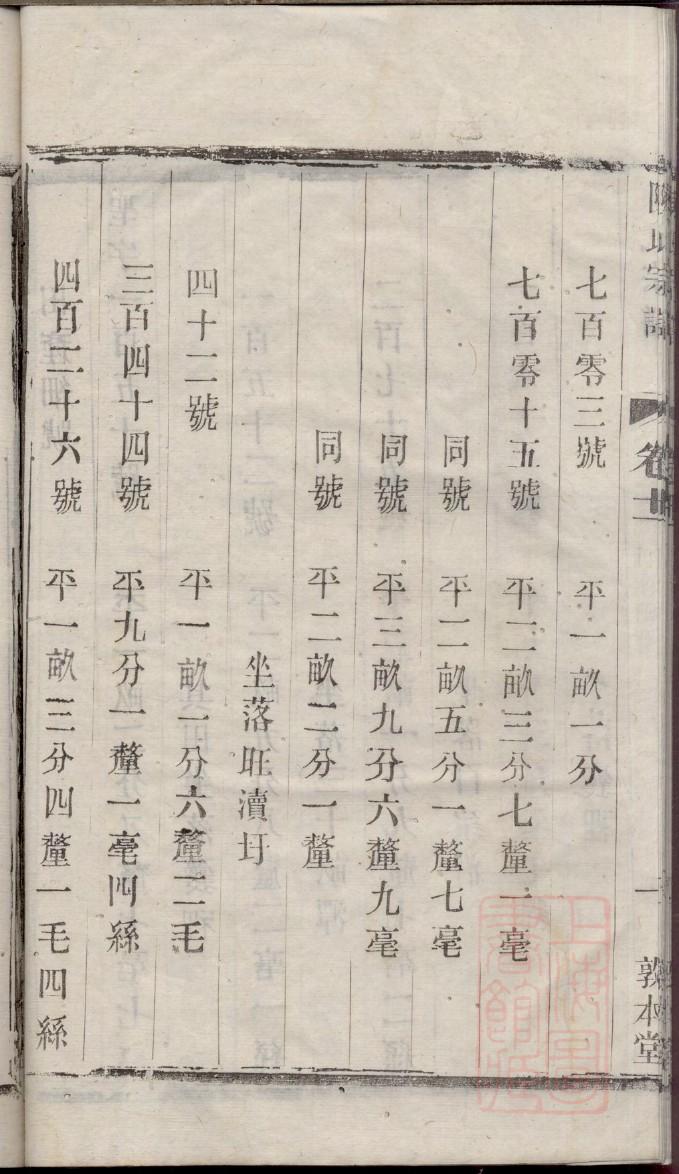 七百零三號 平一畝一分
七百零十五號 平二畝三分七釐一毫
同號 平二畝五分一釐七毫
同號 平三畝九分六釐九毫
同號 平二畝二分一釐
坐落旺瀆圩
四十二號 平一畝一分六釐二毛
三百四十四號 平九分一釐一毫四絲
四百二十六號 平一畝三分四釐一毛四絲
宗譜 卷
一 敦本堂
上海圖書館藏